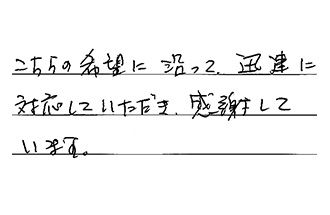 こちらの希望に沿って、迅速に
対応していただき、感謝して
います。